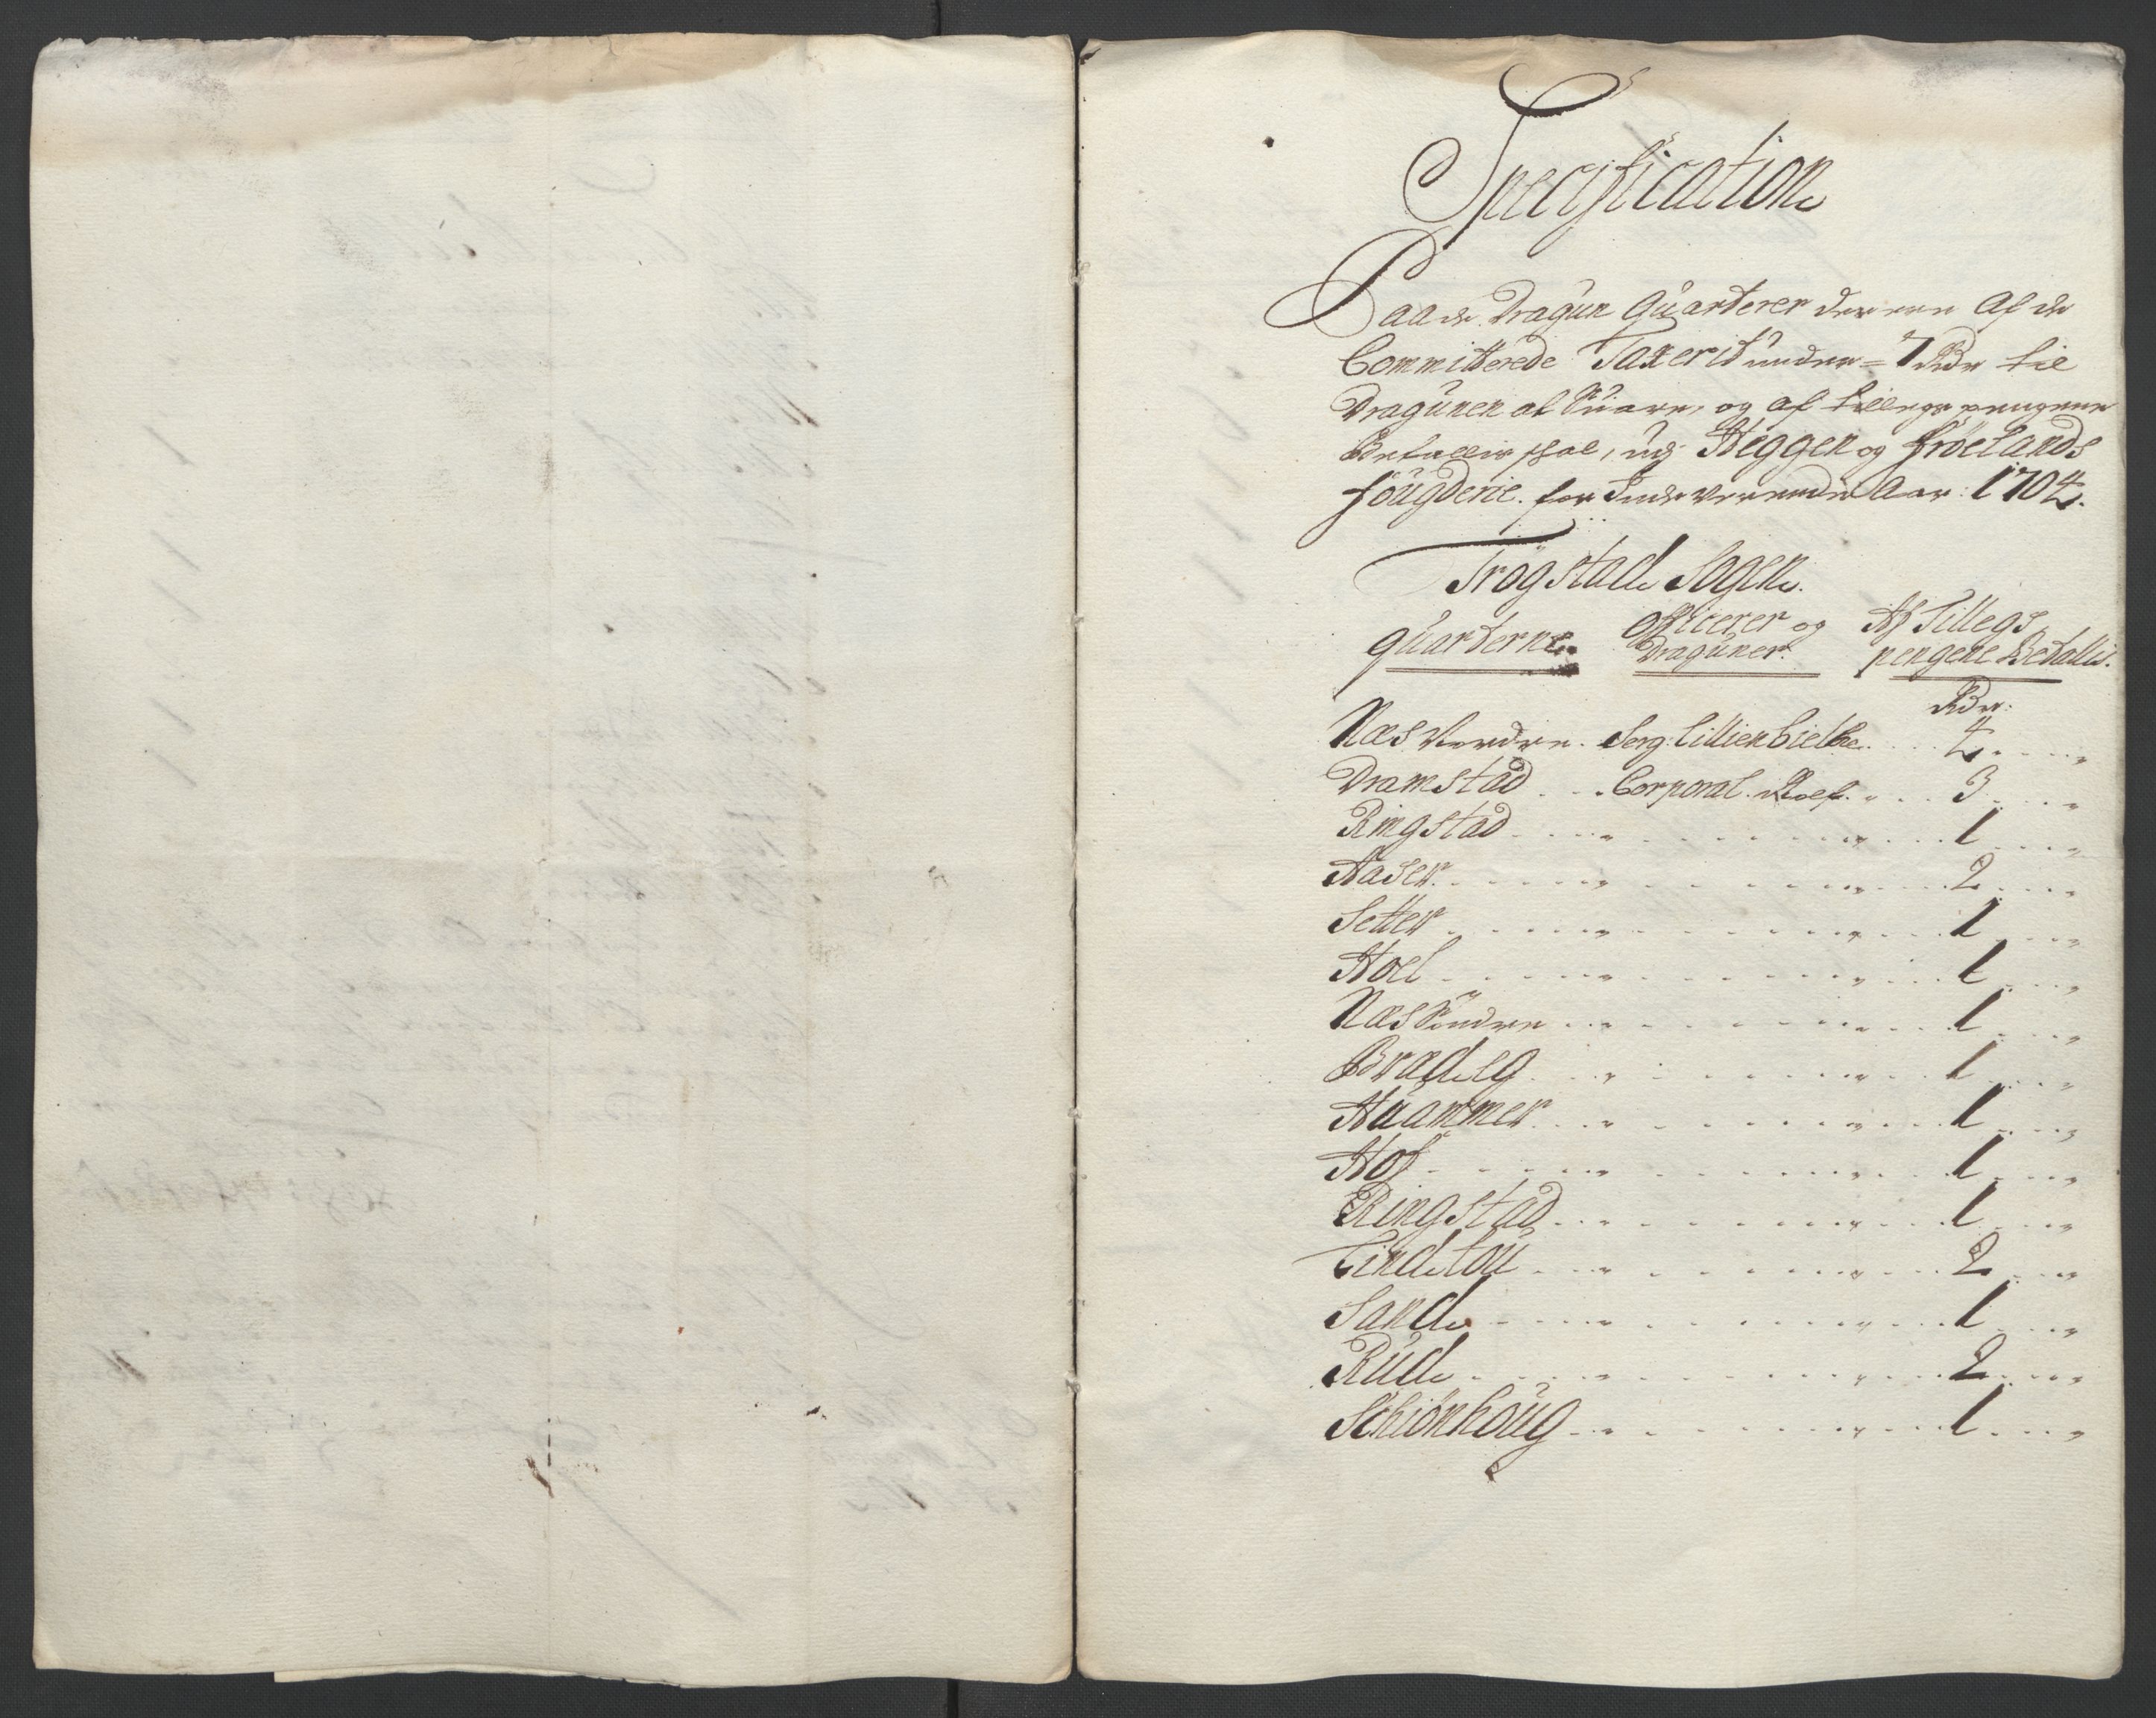 Specification
Paa de Dragun Quarterer der ere Af de
Committerede Taxerit under = 7 Rdr til
Dragunen at Suare, og af tillegs pengene
Betallis skal, udj Heggen og Frøelands
fougderie for Inde werende Aar: 1704.
Trøgstad Sogen.
Quarterne. Officerer og Dragüner. Af Tillegs pengene Betallis.
Rdr:
Næs Nordre. Serg: Lillienbielke. 4
Dramstad Corporal Rolf. 3
Ringstad 1
Aaser 2
Setter 1
Hoel 1
Næs Søndre 1
Bradeg 1
Haammer 1
Hof 1
Ringstad 1
Lindtou 2
Sand 1
Rüd 2
Schiønhoüg 1